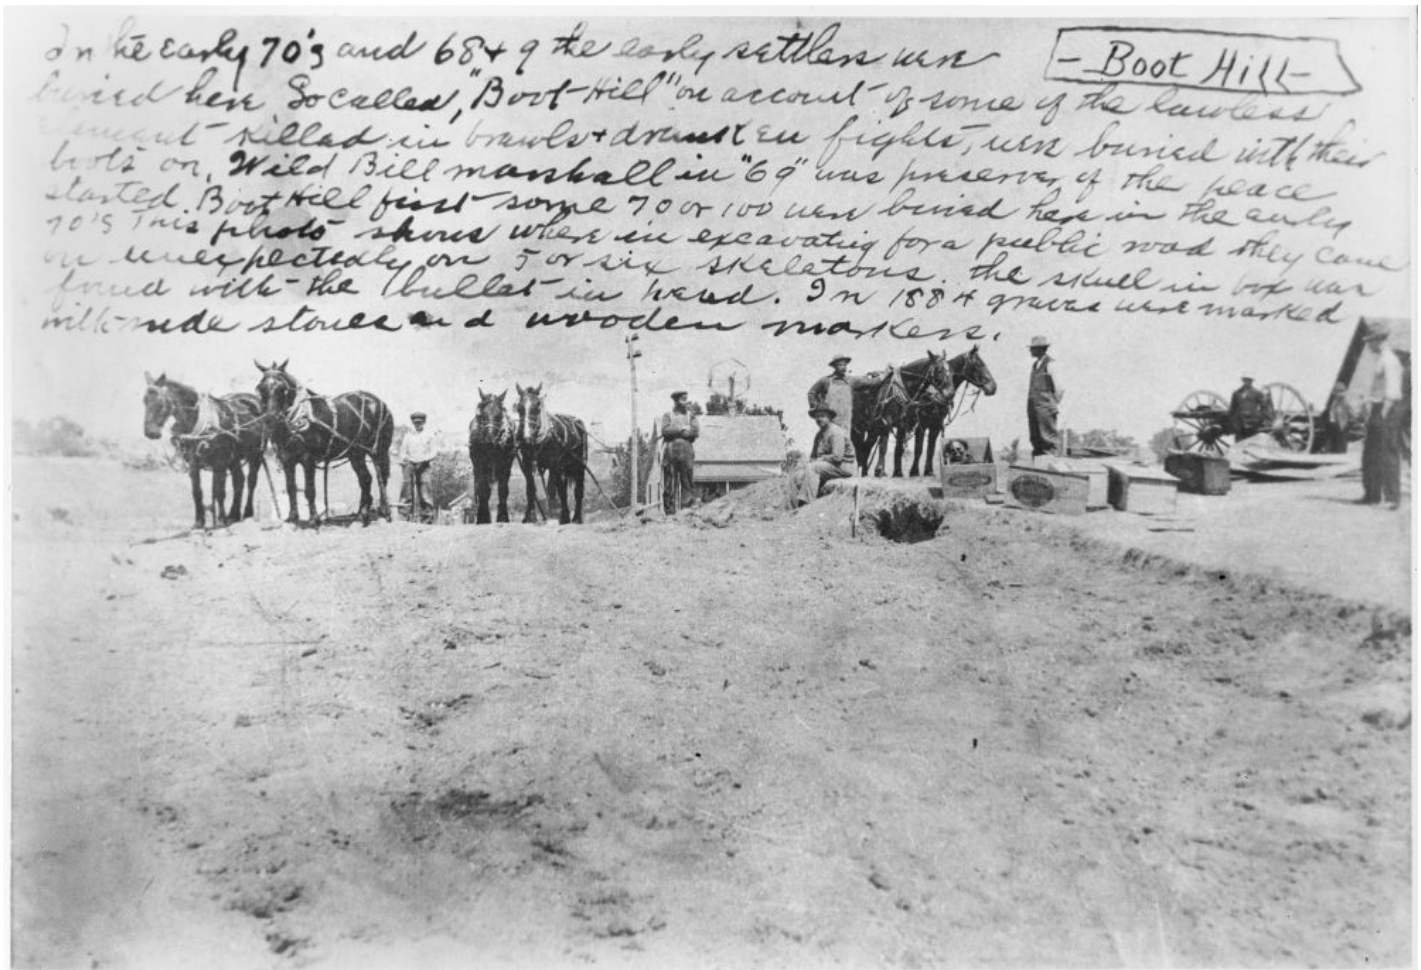 - Boot Hill -
In the early 70's and 68 + 9 the early settlers were
buried here So called, "Boot Hill" on account of some of the lawless
element killed in brawls + drunken fights, were buried with their
boots on. Wild Bill marshall in "69" was preserver of the peace
started Boot Hill first some 70 or 100 were buried here in the early
70's This photo shows where in excavating for a public road they came
on unexpectedly on 5 or six skeletons. the skull in box was
found with the bullet in head. In 1884 graves were marked
with rude stones and wooden markers.